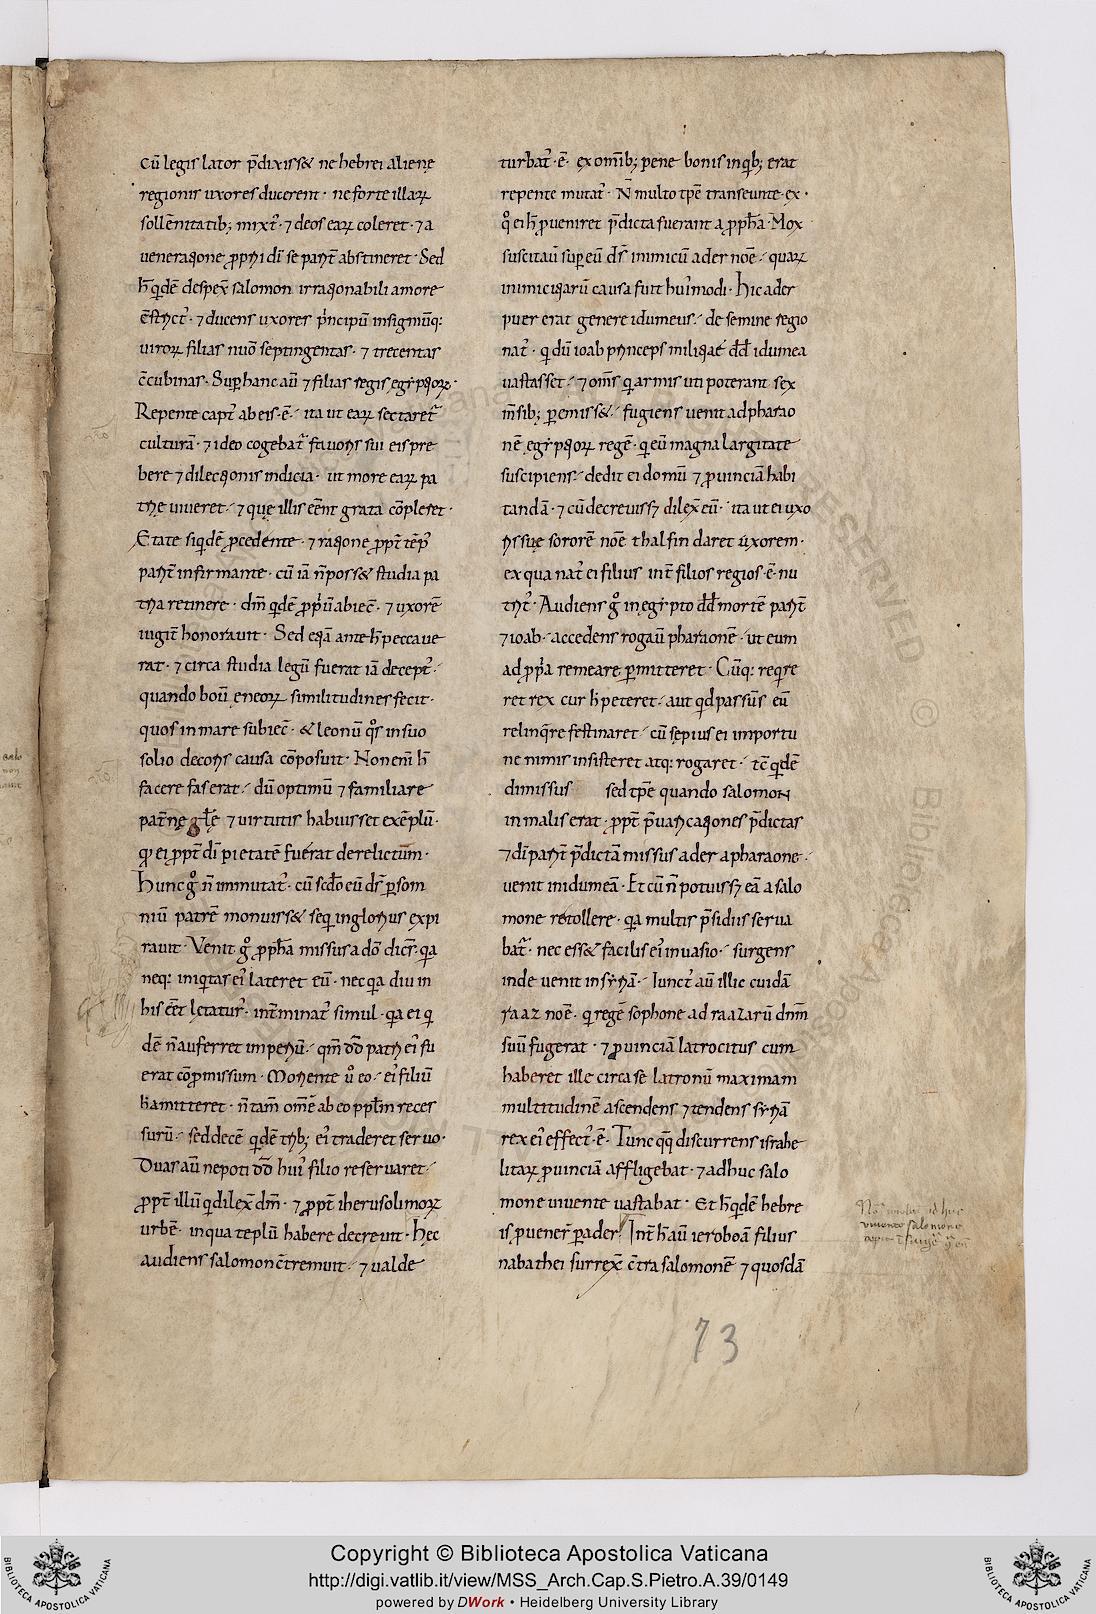 cū legis lator p̄dixiss& ne hebrei alienę
regionis uxores ducerent · ne forte illaꝝ
sollēnitatib; mixt᷒ · ⁊ deos eaꝝ coleret · ⁊ a
ueneratione ꝓprii dī se parit̄ abstineret · Sed
h̄ qidē despex̄ salomon irrationabili amore
ēstrict᷒ · ⁊ ducens uxores p̄ncipū insigniūq:
uiroꝝ filias nūo septingentas · ⁊ trecentas
c̄cubinas · Suꝑ hanc aū ⁊ filias regis egyptioꝝ ·
Repente capt᷒ ab eis · ē · ita ut eaꝝ sectaret᷒
culturā · ⁊ ideo cogebat᷒ fauoris sui eis pre
bere ⁊ dilectionis indicia · ut more eaꝝ pa
trię uiueret · ⁊ quę illis eēnt grata cōpleret ·
Etate siqidē ꝓcedente · ⁊ ratione ꝓpt̄ tēp᷒
parit̄ infirmante · cū iā n̄ poss& studia pa
tria retinere · dm̄ qidē ꝓpriū abiec̄ · ⁊ uxorē
iugit̄ honorauit · Sed etiā ante h̄ peccaue
rat · ⁊ circa studia legū fuerat iā decept᷒ ·
quando boū ęneoꝝ similitudines fecit ·
quos in mare subiec̄ · & leonū qos in suo
solio decoris causa cōposuit · Non eni̅ h̄
facere fas erat · dū optimū ⁊ familiare
patrię głę ⁊ uirtutis habuisset exēplū ·
qd̄ ei ꝓpt̄ dī pietatē fuerat derelictum ·
Hunc g̊ n̄ immutat᷒ · cū scd̄o eū dn̄s ꝑ som
niū patrē monuiss& seqi inglorius expi
rauit · Venit g̊ ꝓph̄a missus a dō dicēs · qia
neq: iniqitas ei᷒ lateret eū · nec qia diu in
his eēt lętatur᷒ · int̄minat᷒ simul · qia ei qi
dē n̄ auferret imperiū · qm̄ dd̄ patri ei᷒ fu
erat cōpromissum · Moriente ū eo · ei᷒ filiū
h̄ amitteret · n̄ tam̄ om̄ē ab eo ppl̄m reces
surū · sed decē qidē trib; ei᷒ traderet seruo ·
Duas aū nepoti dd̄ hui᷒ filio reseruaret ·
ꝓpt̄ illū qi dilex̄ dm̄ · ⁊ ꝓpt̄ iherusolimoꝝ
urbē · in qua tēplū habere decreuit · Hęc
audiens salomon c̄tremuit · ⁊ ualde
turbat᷒ · ē · ex om̄ib; pene bonis in qib; erat
repente mutat᷒ · N̄ multo tp̄e transeunte · ex ·
qo ei h̄ ꝓueniret p̄dicta fuerant a ꝓph̄a · Mox
suscitauī suꝑ eū dn̄s inimicū ader noīe · quaꝝ
inimicitiarū causa fuit hui᷒modi · Hic ader
puer erat genere idumeus · de semine regio
nat᷒ · qi dū ioab princeps militiae dd̄ idumea
uastasset · ⁊ oms̄ qi armis uti poterant sex
m̄sib; ꝑemiss& · fugiens uenit ad pharao
nē egyptioꝝ regē · qi eū magna largitate
suscipiens · dedit ei domū ⁊ ꝓuinciā habi
tandā · ⁊ cū decreuiss; dilex̄ eū · ita ut ei uxo
ris suę sororē noīe thalfin daret uxorem ·
ex qua nat᷒ ei filius int̄ filios regios · ē · nu
trit᷒ · Audiens g̊ in egypto dd̄ mortē parit̄
⁊ ioab · accedens rogauī pharaonē · ut eum
ad ꝓpria remeare ꝑmitteret · Cūq: reqire
ret rex cur h̄ peteret · aut qid passus̄ eū
relinqere festinaret · cū sepius ei importu
ne nimis insisteret atq: rogaret · tc̄ qidē
dimissus sed tp̄e quando salomon
in malis erat · ꝓpt̄ p̄uaricationes p̄dictas
⁊ dī parit̄ p̄dictā missus ader a pharaone ·
uenit in idumeā · Et cū n̄ potuiss; eā a salo
mone retollere · qia multis p̄sidiis serua
bat᷒ · nec ess& facilis ei᷒ inuasio · surgens
inde uenit in syriā · Iunct᷒ aū illic cuidā
raaz noīe · qi regē sophone adraazarū dnm̄
suū fugerat · ⁊ ꝓuinciā latrocitus cum
haberet ille circa se latronū maximam
multitudinē ascendens ⁊ tendens syriā
rex ei᷒ effect᷒ · ē · Tunc qq̄ discurrens israhe
litaꝝ ꝓuinciā affligebat · ⁊ adhuc salo
mone uiuente uastabat · Et h̄ qidē hebre
is ꝓuener̄ ꝑ ader · Int̄ h̄ aū ieroboā filius
nabathei surrex̄ c̄tra salomonē ⁊ quosdā
uiuente salomone
73
Copyright © Biblioteca Apostolica Vaticana
http://digi.vatlib.it/view/MSS_Arch.Cap.S.Pietro.A.39/0149
powered by DWork • Heidelberg University Library